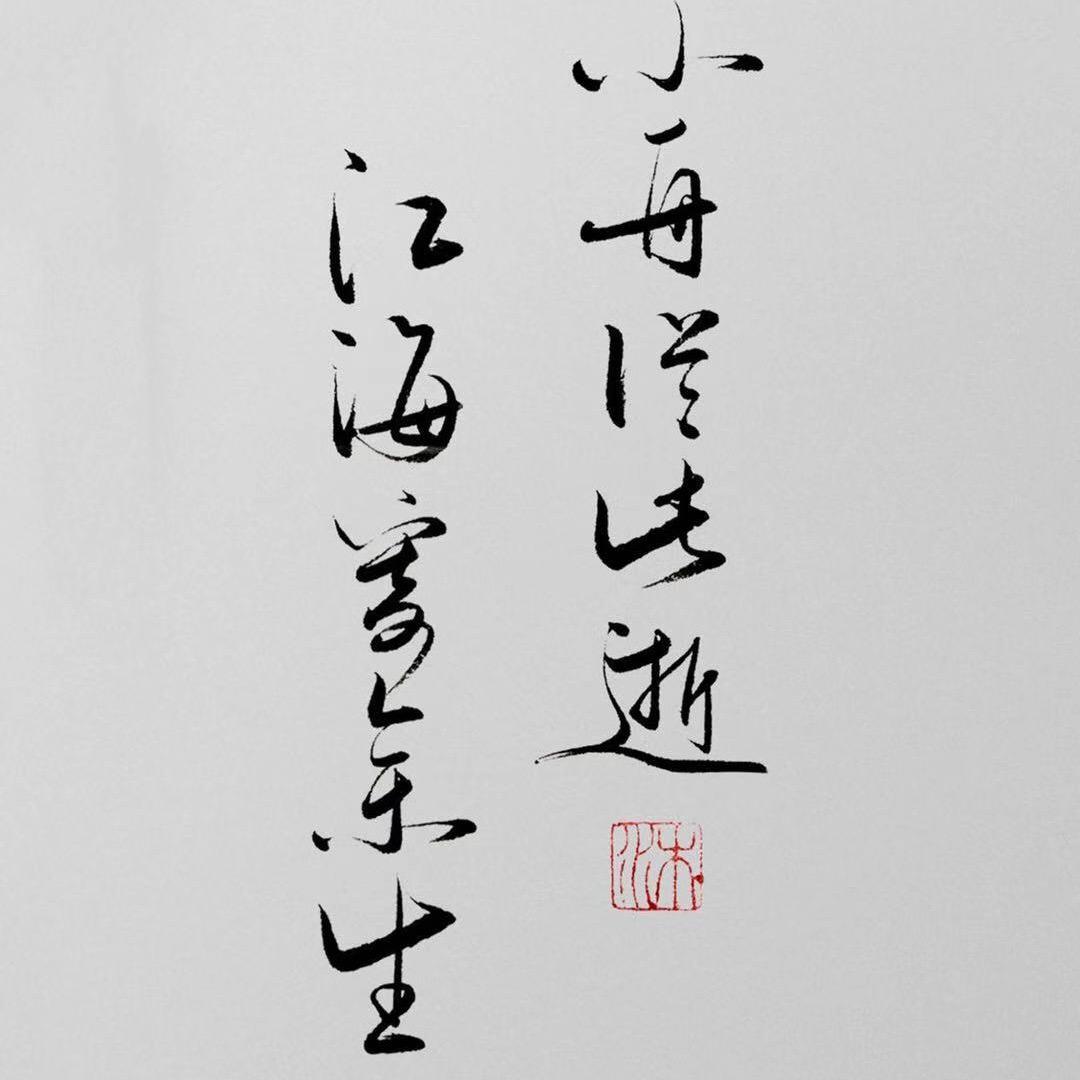 小舟從此逝
江海寄余生
沐